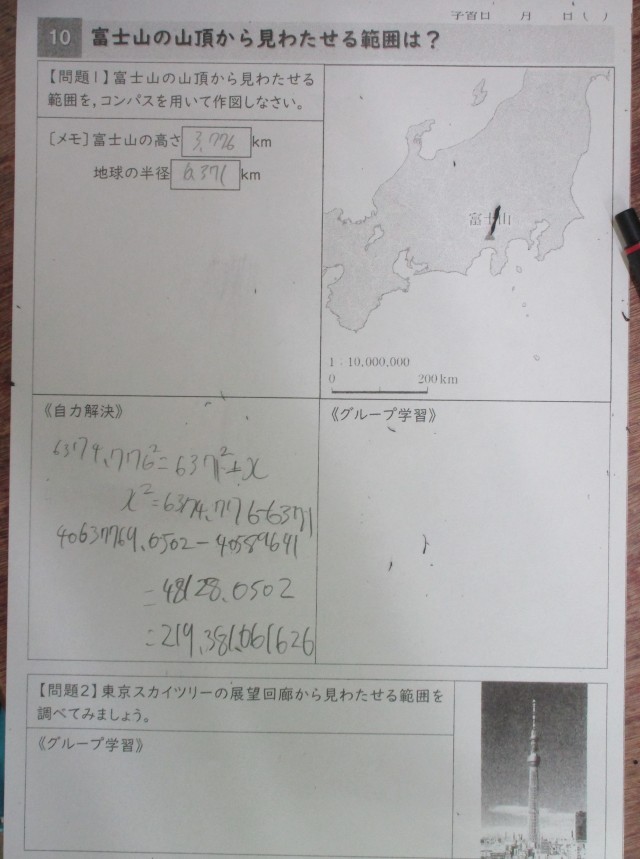 学習日　月　日（　）
10 富士山の山頂から見わたせる範囲は？
【問題1】富士山の山頂から見わたせる
範囲を,コンパスを用いて作図しなさい。
［メモ］富士山の高さ 3.776 km
地球の半径 6.371 km
富士山
1：10,000,000
0 200km
《自力解決》
《グループ学習》
6374.776²=6371²+x
x²=6374.776-6371
40637769.0502-40589641
=48128.0502
=219.381061626
【問題2】東京スカイツリーの展望回廊から見わたせる範囲を
調べてみましょう。
《グループ学習》